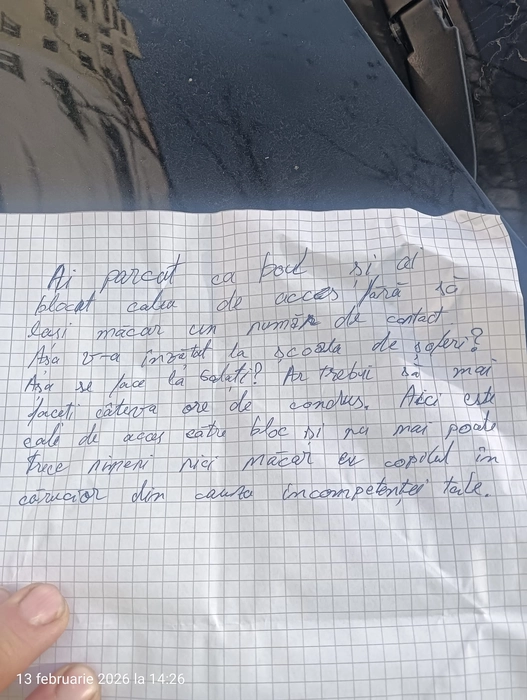 Ai parcat ca boul și ai
blocat calea de acces fără să
lași măcar un număr de contact
Așa v-a învățat la școala de șoferi?
Așa se face la Galați? Ar trebui să mai
faceți câteva ore de condus. Aici este
cale de acces către bloc și nu mai poate
trece nimeni nici măcar cu copilul în
cărucior din cauza incompetenței tale.
13 februarie 2026 la 14:26